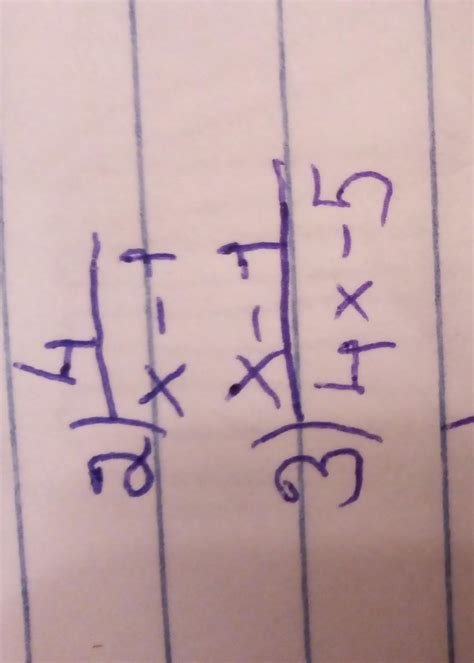 2) 4
x - 1
3) x - 1
4x - 5